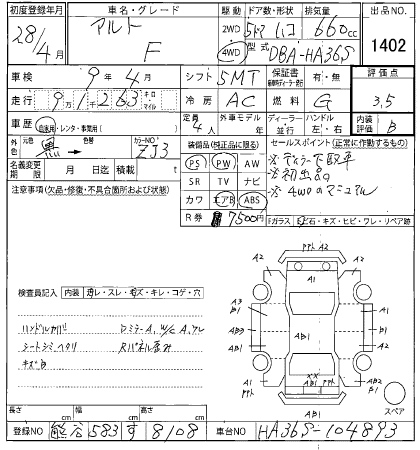 初度登録年月
28/4月
車名・グレード
アルト
F
駆動
2WD
4WD
ドア数・形状
5ドア
排気量
660cc
型式
DBA-HA36S
出品NO.
1402
車検
9年4月
シフト
5MT
保証書
有・無
評価点
3.5
走行
9万1千263
キロ
マイル
冷房
AC
燃料
G
ハンドル
左・右
内装
評価
B
車歴
自家用・レンタ・事業用( )
定員
4人
外車モデル
年
ディーラー
並行
外色
元色
黒
色替
カラーNO.
ZJ3
装備品(純正品に限る)
PS
PW
AW
SR
TV
ナビ
カワ
エアB
ABS
R券
7500円
セールスポイント(正常に作動するもの)
※ディーラー下取車
※初出品
※4WDのマニュアル
名義変更
期限
月
日迄
積載
t
Fガラス
石・キズ・ヒビ・ワレ・リペア跡
注意事項(欠品・修復・不具合箇所および状態)
検査員記入
内装
ヨゴレ・スレ・キズ・キレ・コゲ・穴
ハンドルカバー
シートシミヘタリ
キズB
A2
A2
A1
A2
A3
B1
AB3
B1
AB1
A1
AB1
A1
AB2
B1
XX
AB1
AB1
スペア
長さ
cm
幅
cm
高さ
cm
登録NO
熊谷583す8108
車台NO
HA36S-104893